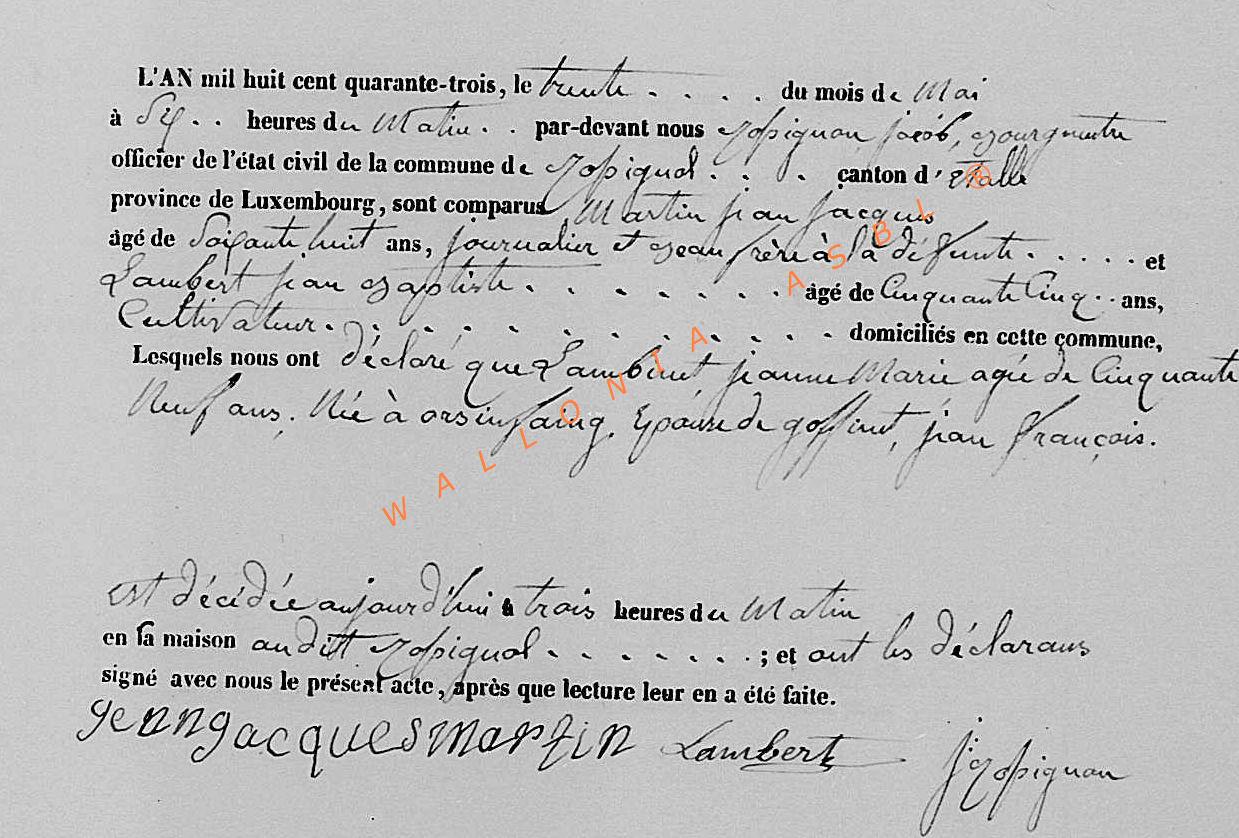 L'AN mil huit cent quarante-trois, le trente . . . . du mois de Mai
à Six . . heures du Matin . . par-devant nous Rossignon jacob, Bourgmestre
officier de l'état civil de la commune de Rossignol . . . canton d'Etalle
province de Luxembourg, sont comparus Martin jean jacques
âgé de Soixante huit ans, journalier et Beau frère à la défunte . . . . . et
Lambert jean Baptiste . . . . . . . âgé de Cinquante Cinq . . ans,
Cultivateur . . . . . . . . . . . . domiciliés en cette commune,
Lesquels nous ont déclaré que Lambinet jeanne Marie agée de Cinquante
Neuf ans. Née à orsinfaing. Epouse de goffinet, jean françois.
est décédée aujourd'hui à trois heures du Matin
en sa maison audit Rossignol . . . . . . . ; et ont les déclarans
signé avec nous le présent acte, après que lecture leur en a été faite.
jennjacquesmartin Lambert J: Rossignon
WALLONIA ASBL ®